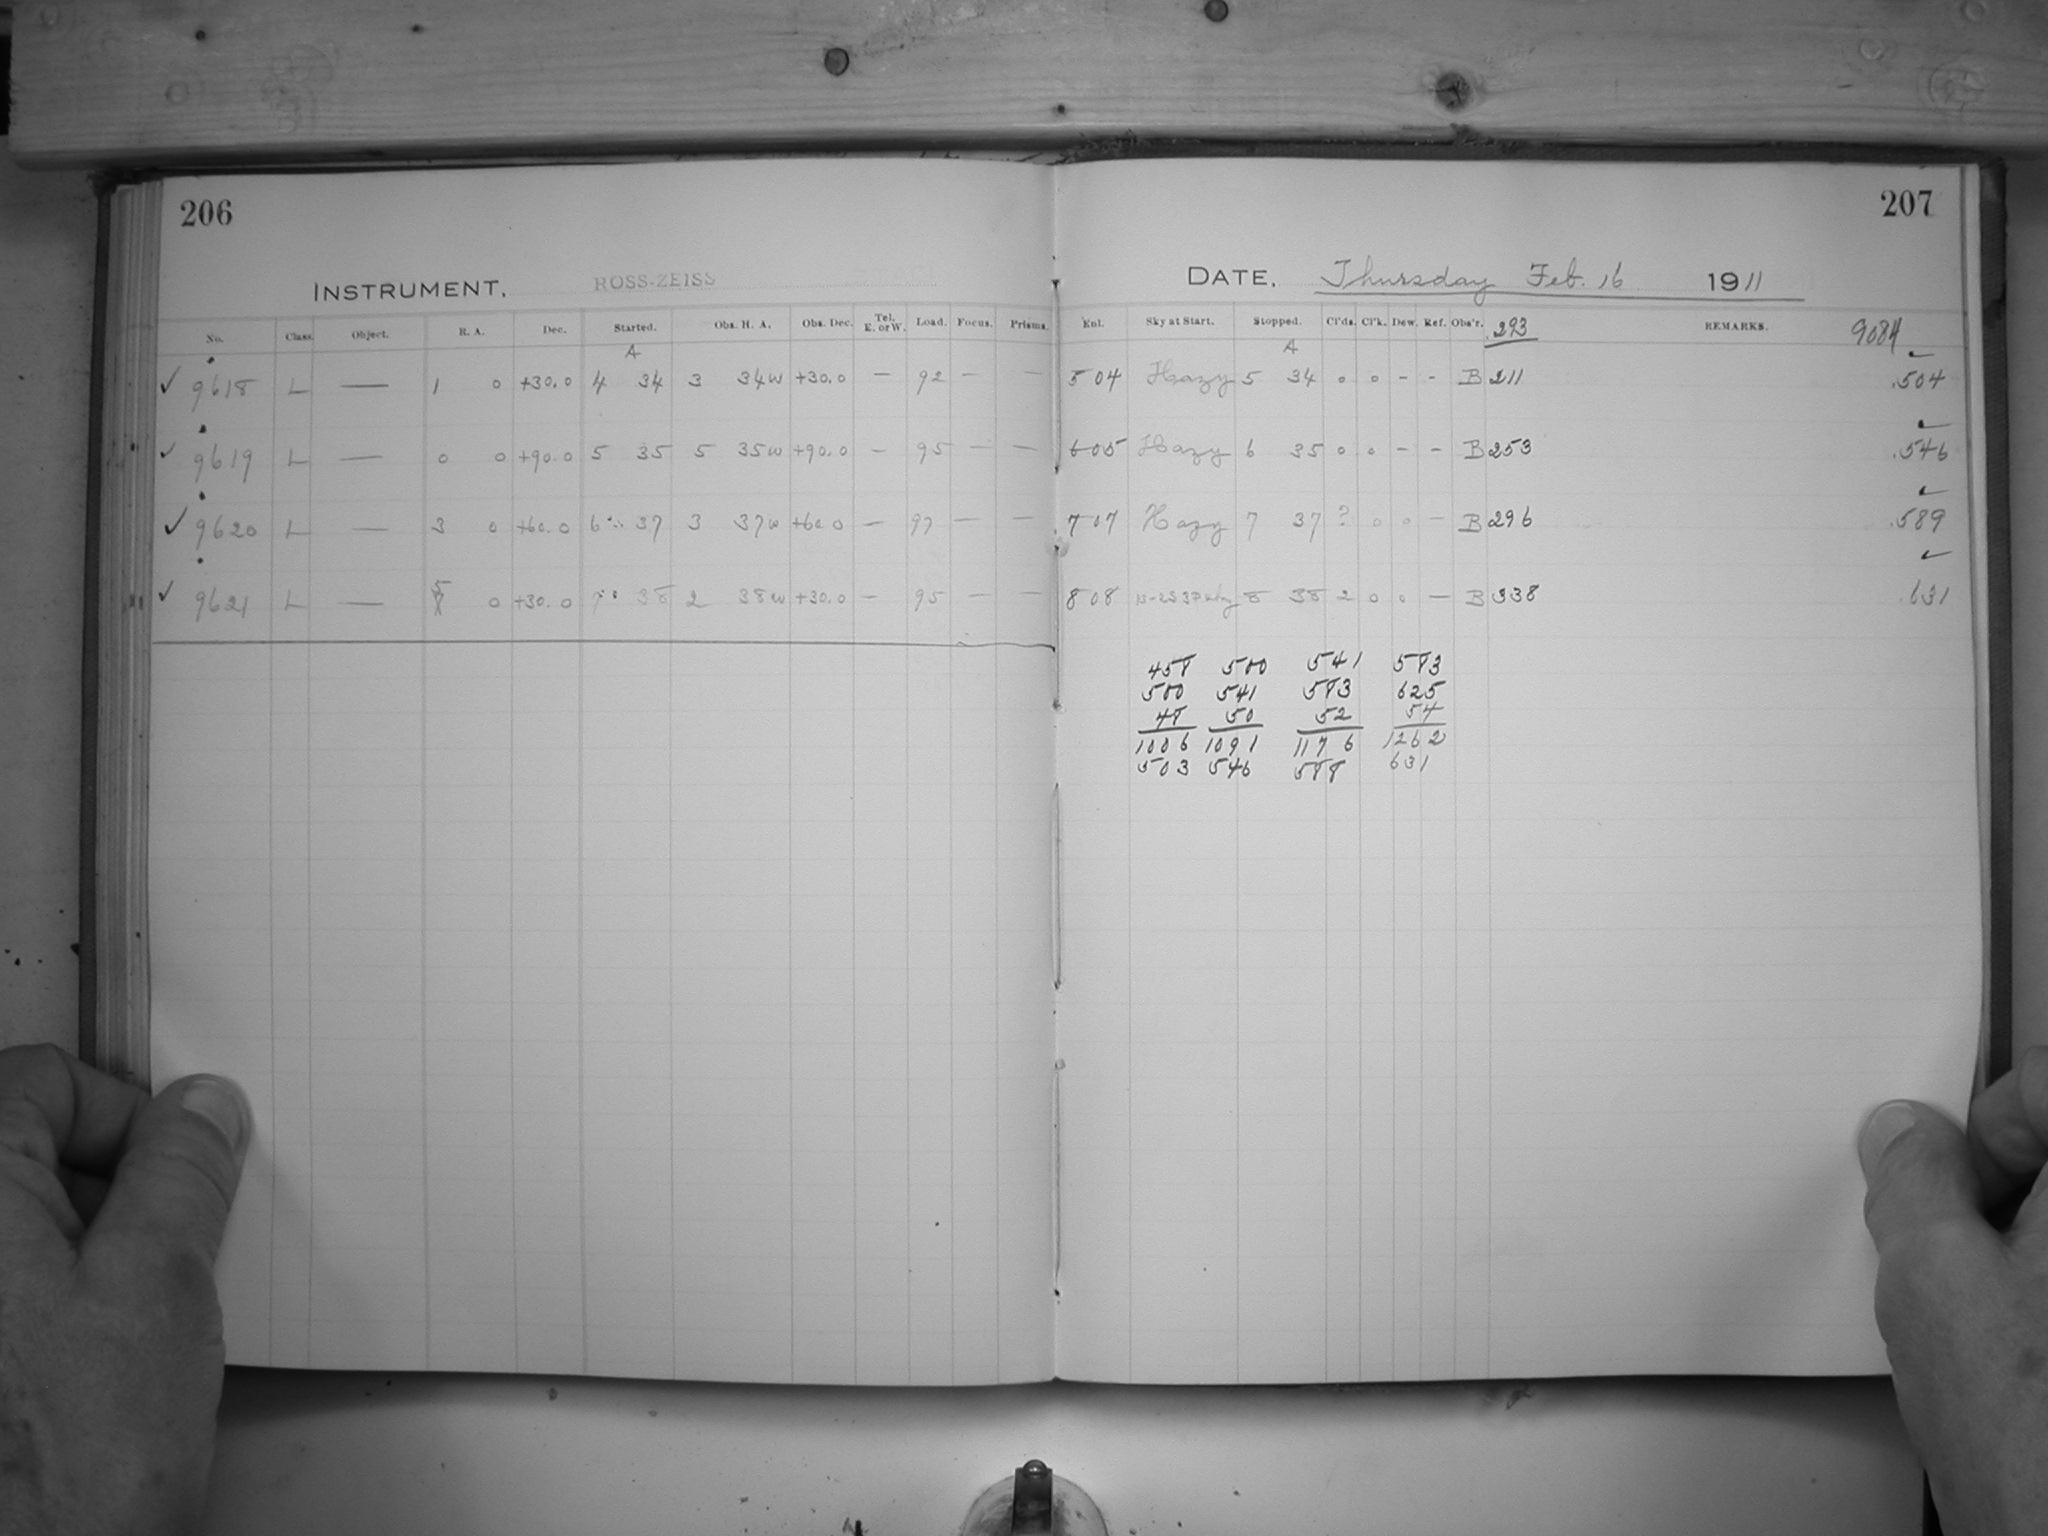 206
INSTRUMENT. ROSS-ZEISS
No. Class. Object. R. A. Dec. Started. Obs. H. A. Obs. Dec. Tel. E. or W. Load. Focus. Prisms.
A
✓ 9618 L — 1 0 +30.0 4 34 3 34w +30.0 — 92 — —
✓ 9619 L — 0 0 +90.0 5 35 5 35w +90.0 — 95 — —
✓ 9620 L — 3 0 +60.0 6 37 3 37w +60.0 — 97 — —
✓ 9621 L — 5 0 +30.0 7 38 2 38w +30.0 — 95 — —
207
DATE. Thursday Feb. 16 1911
Enl. Sky at Start. Stopped. Cl'ds. Cl'k. Dew. Ref. Obs'r. .293 REMARKS. 9084
A
504 Hazy 5 34 0 0 - - B 211 .504 ✓
605 Hazy 6 35 0 0 - - B 253 .546 ✓
707 Hazy 7 37 ? 0 0 - B 296 .589 ✓
808 8 38 2 0 0 — B 338 .631 ✓
458 500 541 583
500 541 583 625
48 50 52 54
1006 1091 1176 1262
503 546 588 631